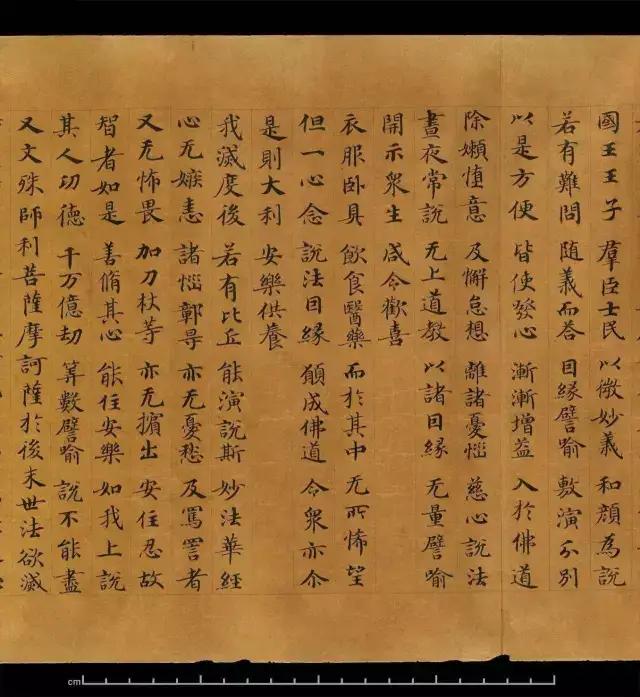 國王王子 羣臣士民 以微妙義 和顏為說
若有難問 随義而荅 因縁譬喻 敷演分別
以是方便 皆使發心 漸漸增益 入於佛道
除嬾惰意 及懈怠想 離諸憂惱 慈心說法
晝夜常說 无上道教 以諸因縁 无量譬喻
開示衆生 咸令歡喜
衣服卧具 飲食醫藥 而於其中 无所悕望
但一心念 說法因縁 願成佛道 令衆亦尒
是則大利 安樂供養
我滅度後 若有比丘 能演說斯 妙法華經
心无嫉恚 諸惱鄣㝵 亦无憂愁 及罵詈者
又无怖畏 加刀杖等 亦无擯出 安住忍故
智者如是 善脩其心 能住安樂 如我上說
其人功德 千万億劫 筭數譬喻 說不能盡
又文殊師利菩薩摩訶薩於後末世法欲滅
cm